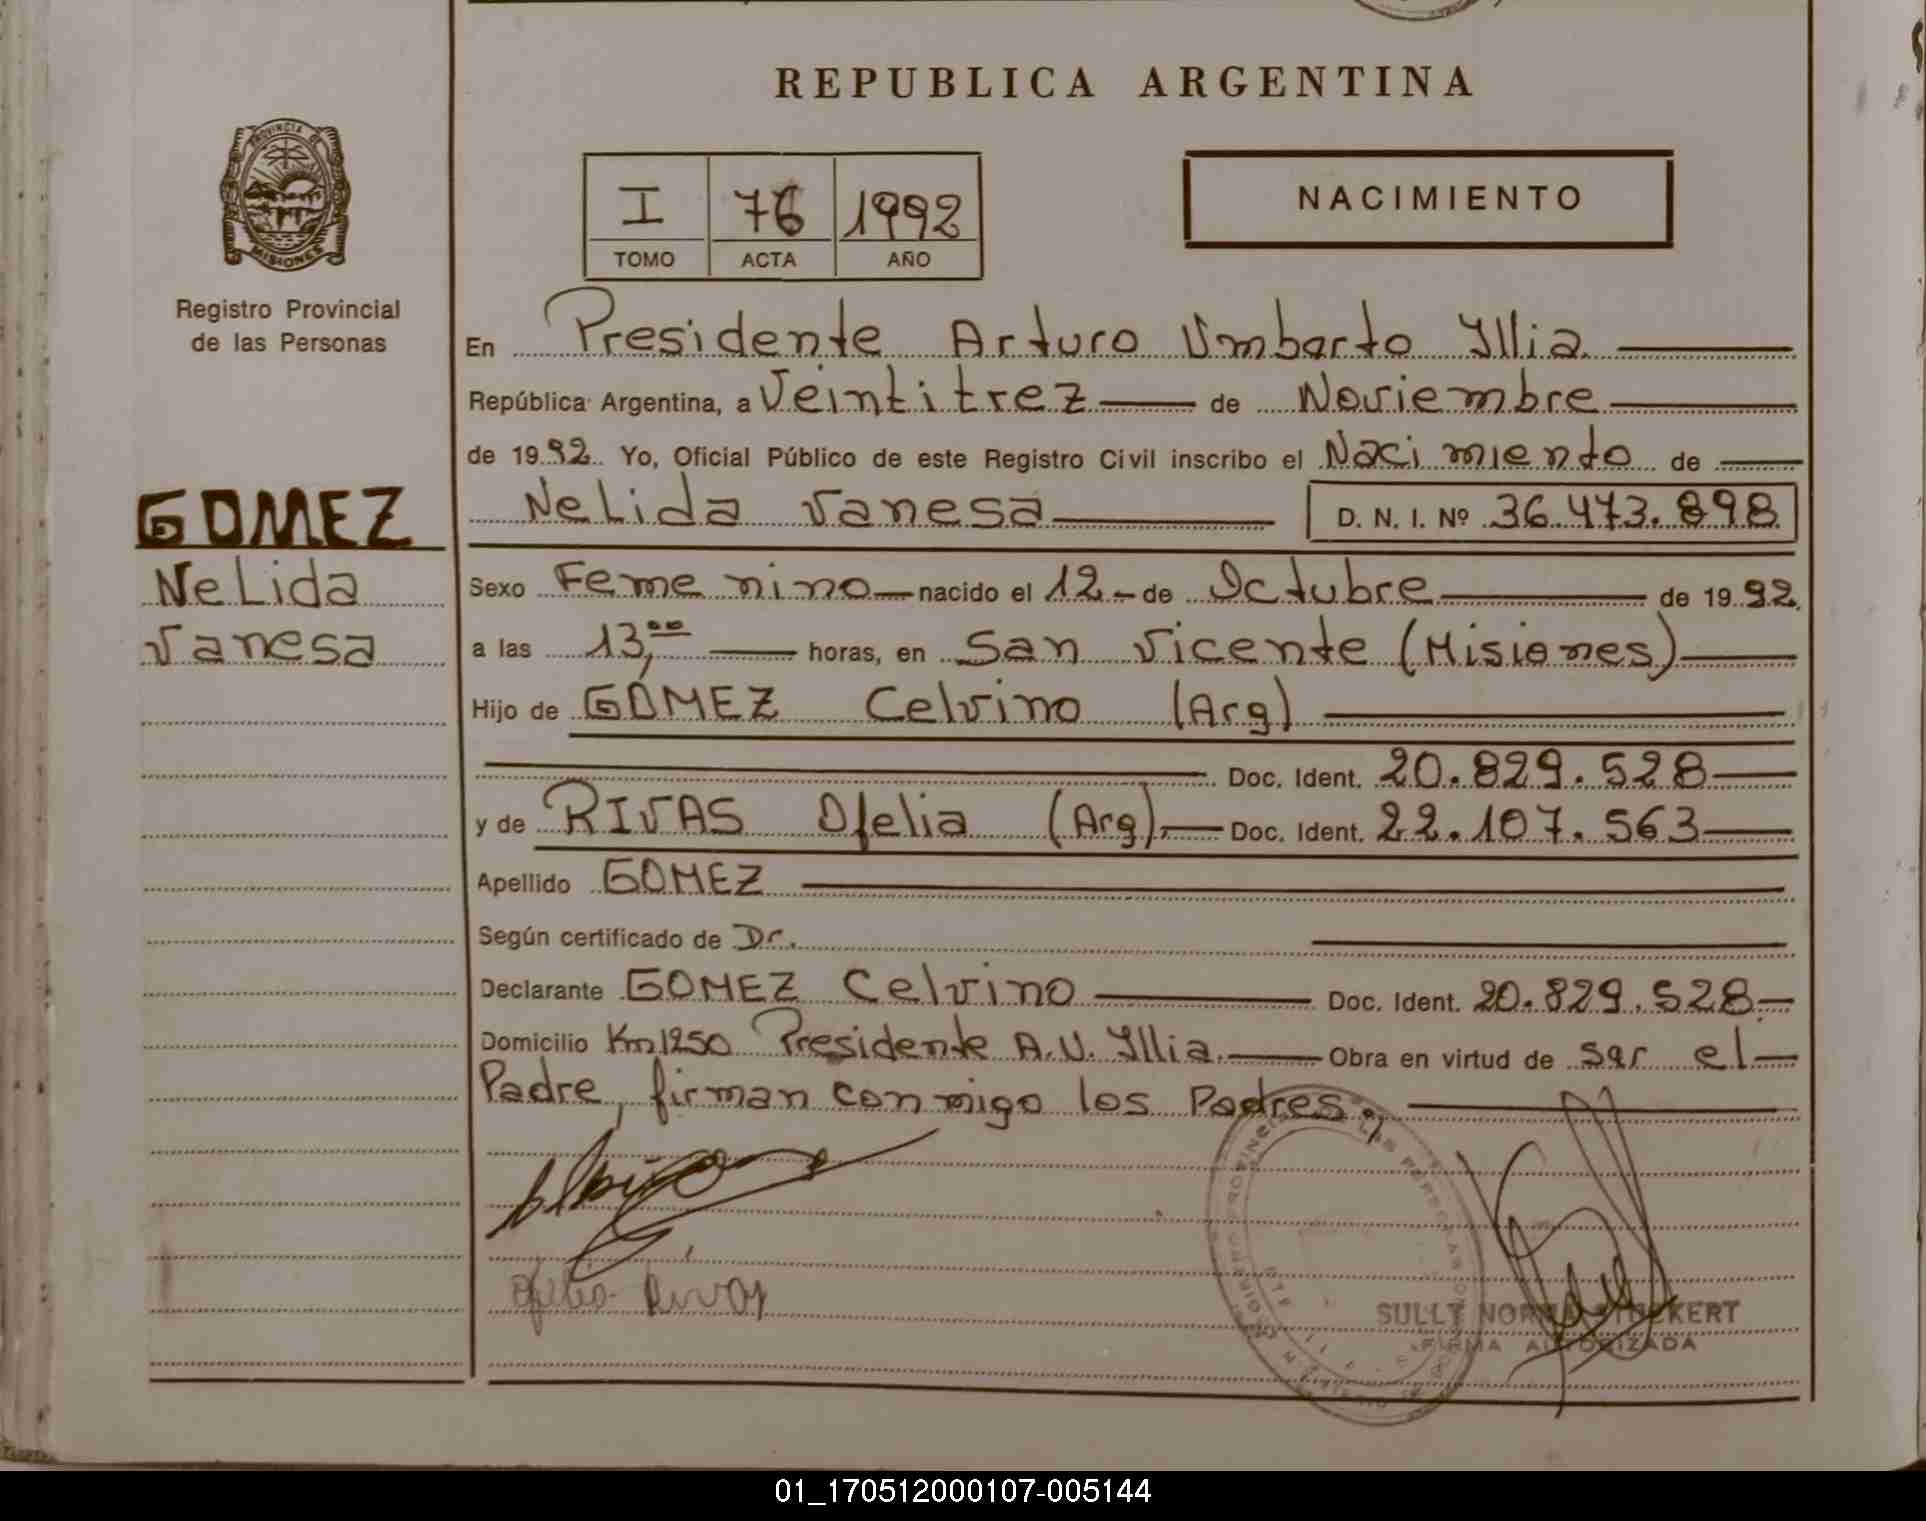 REPUBLICA ARGENTINA
PROVINCIA DE
MISIONES
Registro Provincial
de las Personas
I 76 1992
TOMO ACTA AÑO
NACIMIENTO
En Presidente Arturo Umberto Illia
República Argentina, a Veintitrez de Noviembre
de 1992. Yo, Oficial Público de este Registro Civil inscribo el Nacimiento de
Nelida Vanesa D. N. I. Nº 36.473.898
GOMEZ
Nelida
Vanesa
Sexo Femenino nacido el 12 de Octubre de 1992.
a las 13,00 horas, en San Vicente (Misiones)
Hijo de GOMEZ Celvino (Arg)
Doc. Ident. 20.829.528
y de RIVAS Ofelia (Arg). Doc. Ident. 22.107.563
Apellido GOMEZ
Según certificado de Dr.
Declarante GOMEZ Celvino Doc. Ident. 20.829.528.
Domicilio Km1250 Presidente A.U. Illia. Obra en virtud de ser el
Padre, firman conmigo los Padres;
Ofelia Rivas
SULLY NORMA
FIRMA AUTORIZADA
01_170512000107-005144